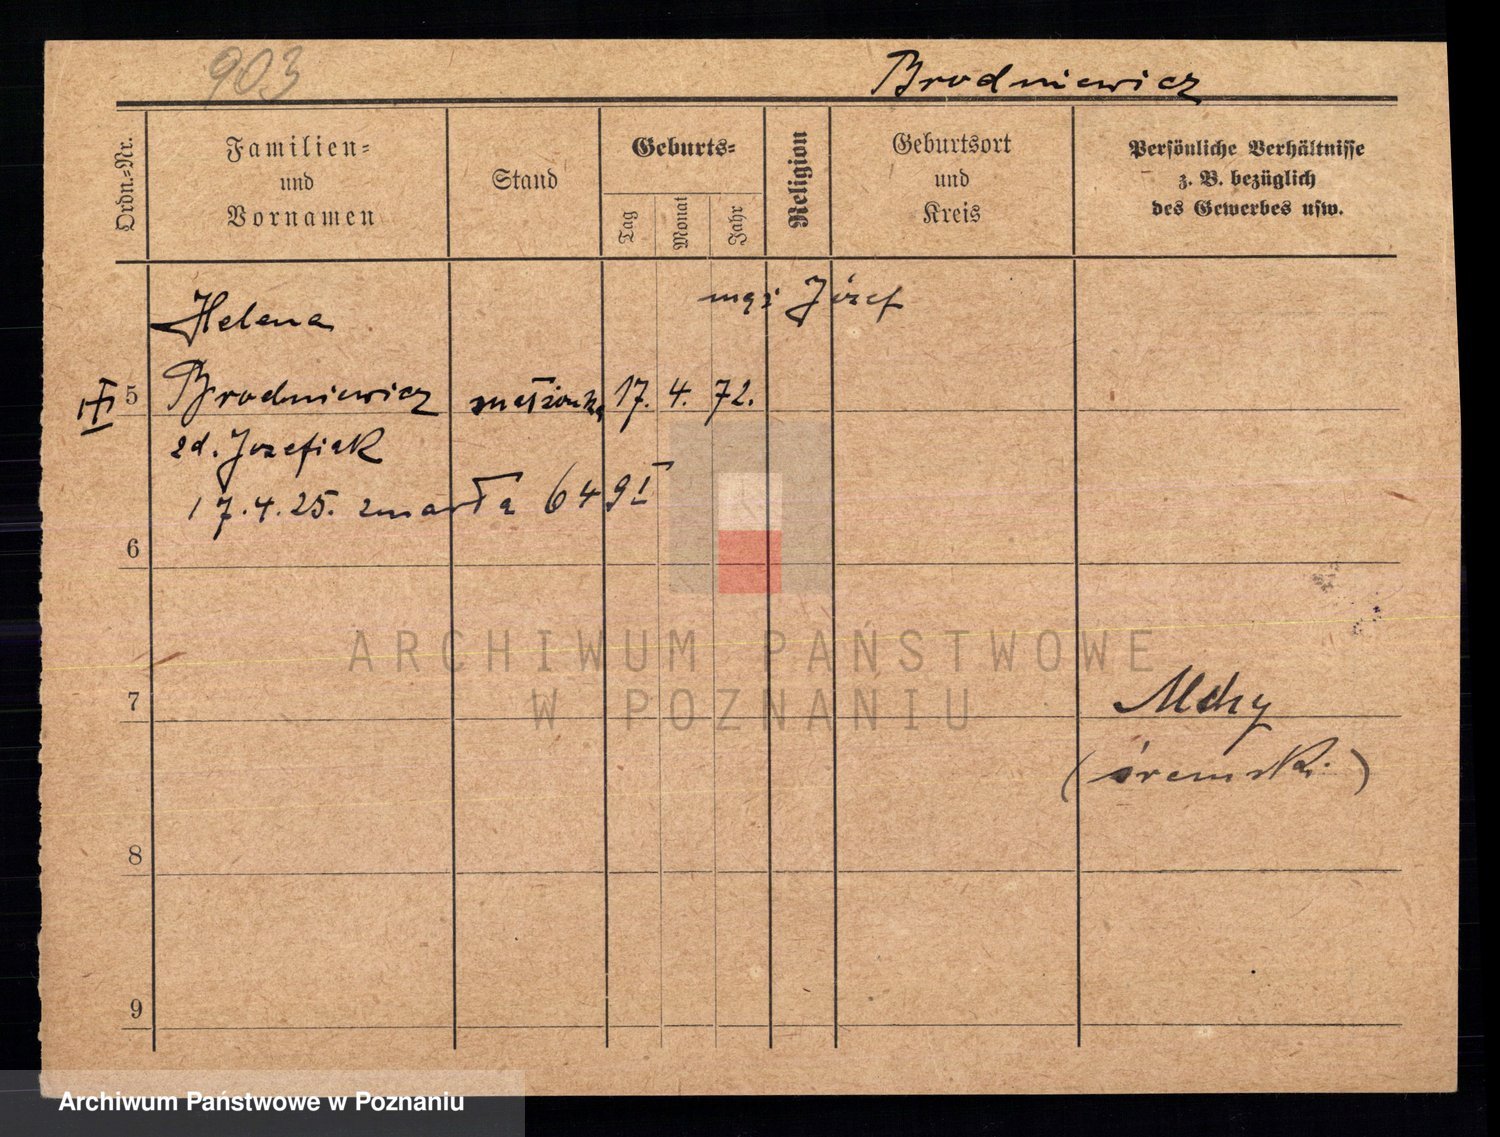 903
Brodniewicz
Ordn.-Nr.
Familien-
und
Vornamen
Stand
Geburts-
Tag
Monat
Jahr
Religion
Geburtsort
und
Kreis
Persönliche Verhältnisse
z. B. bezüglich
des Gewerbes usw.
mąż Józef
Helena
5 Brodniewicz małżonka 17. 4. 72.
zd. Jozefiak
17.4.25. zmarła 649 I
6
ARCHIWUM PAŃSTWOWE
W POZNANIU
7
Mchy
(śremski)
8
9
Archiwum Państwowe w Poznaniu